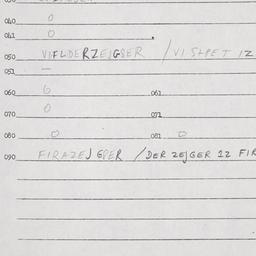 040 0
041 0
050 VIFLDERZEJGSER / VISTPET 12
051 —
060 0 061
070 0 071
080 0 081 0
090 FIRAZEJGPER / DER ZEJGER 12 FIR